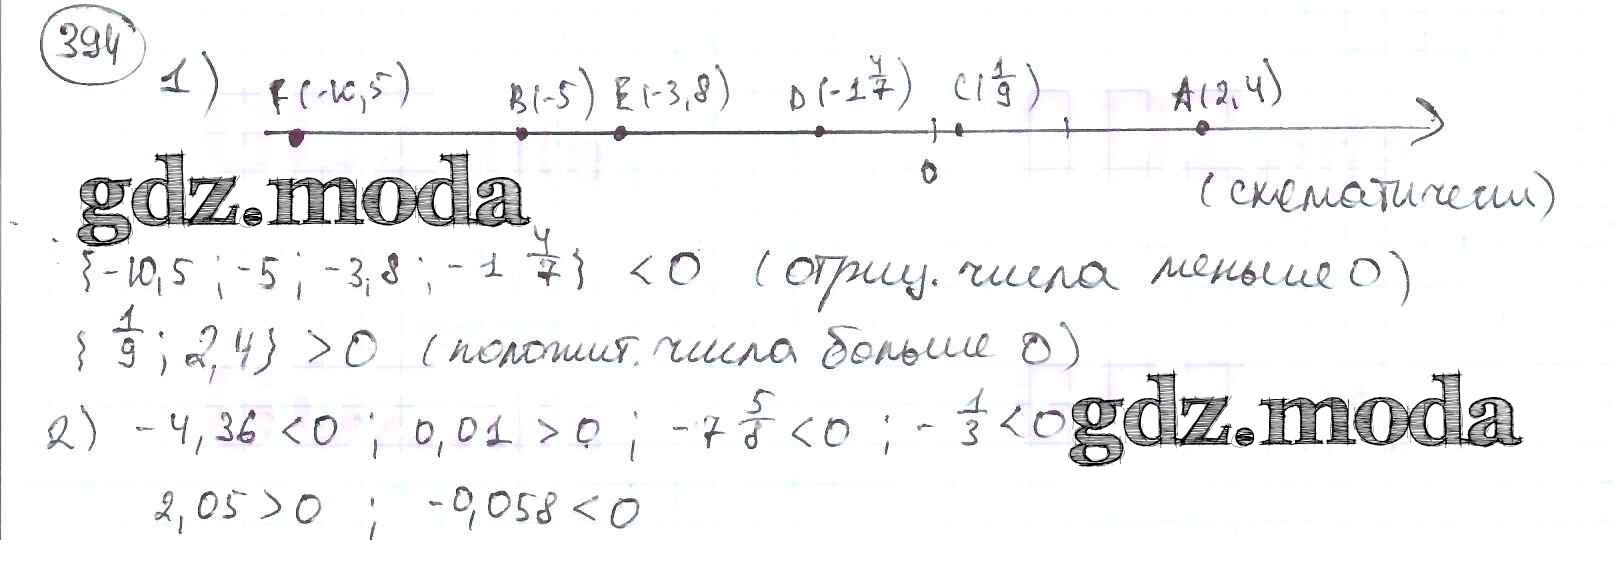 394
1) F(-10,5) B(-5) E(-3,8) D(-1 4/7) C(1/9) A(2,4)
0
(схематически)
gdz.moda
{-10,5 ; -5 ; -3,8 ; -1 4/7} < 0 (отриц. числа меньше 0)
{1/9 ; 2,4} > 0 (положит. числа больше 0)
2) -4,36 < 0 ; 0,01 > 0 ; -7 5/8 < 0 ; -1/3 < 0
gdz.moda
2,05 > 0 ; -0,058 < 0